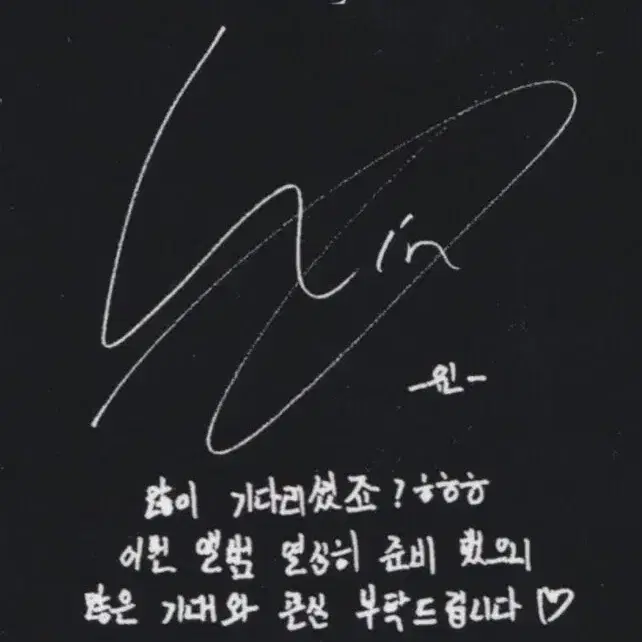 Win
-윈-
많이 기다리셨죠? ㅎㅎㅎ
이번 앨범 열심히 준비 했으니
많은 기대와 관심 부탁드립니다 ♡